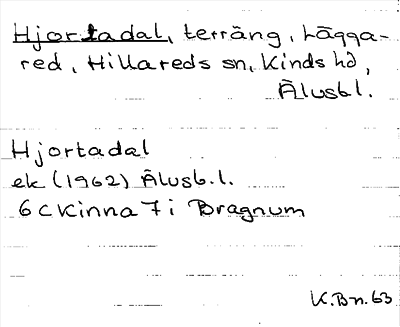 Hjortadal, terräng, Lägga-
red, Hillareds sn, Kinds hd,
Älvsb.l.
Hjortadal
ek (1962) Älvsb.l.
6 C Kinna 7 i Bragnum
K.Bn.63